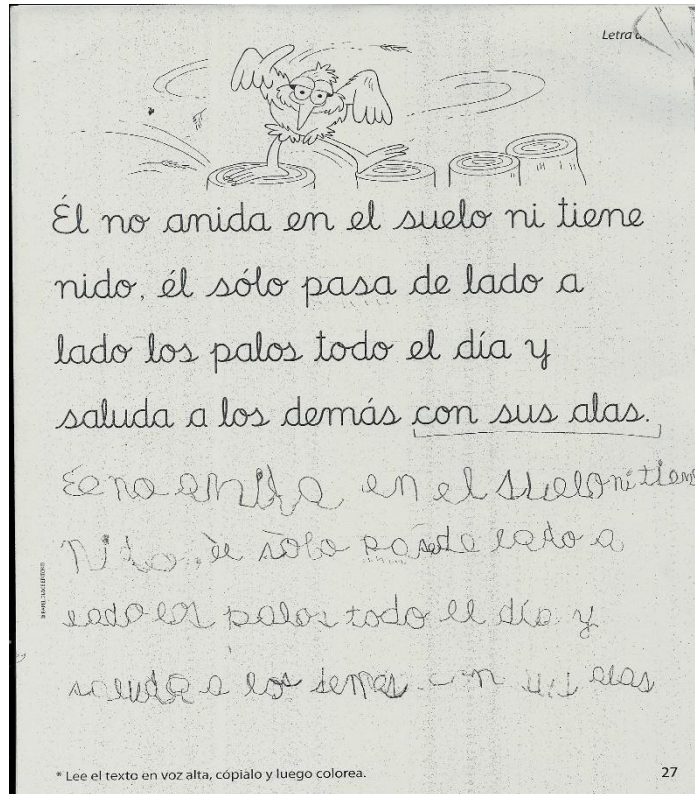 Letra
Él no anida en el suelo ni tiene
nido, él sólo pasa de lado a
lado los palos todo el día y
saluda a los demás con sus alas.
no anida en el suelo ni tien
Nido, él sólo pasa de lado a
lado los palos todo el día y
saluda a los demas con sus alas
* Lee el texto en voz alta, cópialo y luego colorea.
27